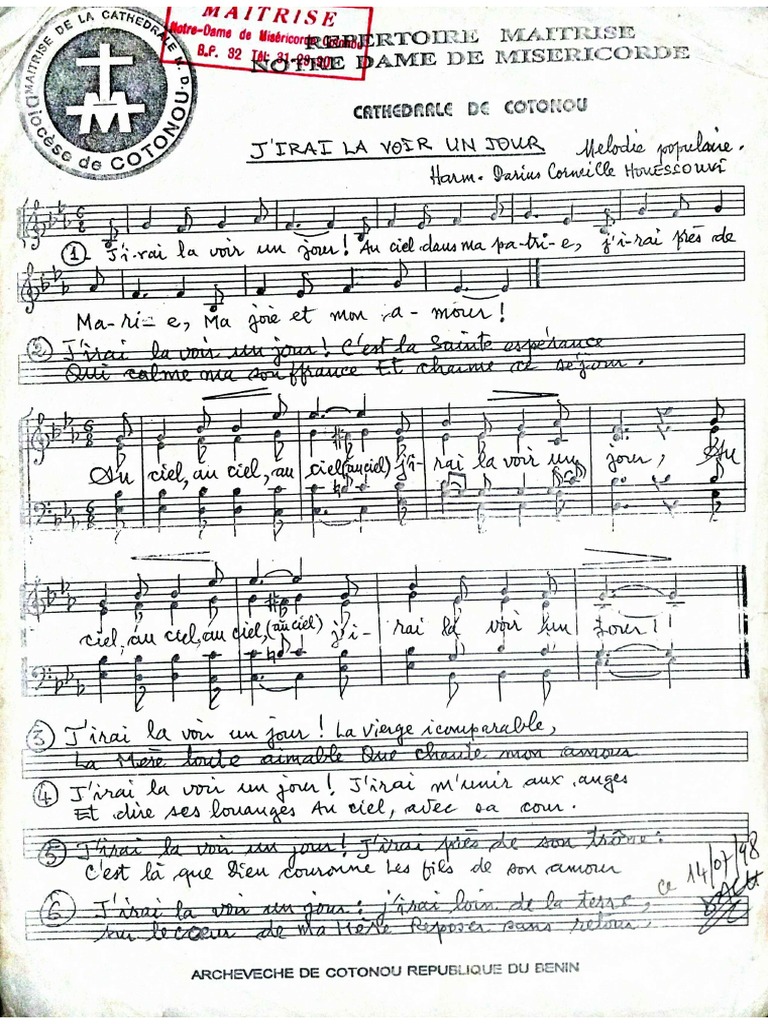 MAITRISE DE LA CATHEDRALE N. D.
Diocèse de COTONOU
M
MAITRISE
Notre-Dame de Miséricorde Cotonou
B.P. 32 Tél: 31-29-30
REPERTOIRE MAITRISE
NOTRE DAME DE MISERICORDE
CATHEDRALE DE COTONOU
J'IRAI LA VOIR UN JOUR Melodie populaire.
Harm. Darius Corneille HOUESSOUVI
6 8
① J'i-rai la voir un jour! Au ciel dans ma pa-tri-e, j'i-rai près de
Ma-ri-e, Ma joie et mon a-mour!
② J'irai la voir un jour! C'est la Sainte espérance
Qui calme ma souffrance Et charme ce séjour.
6 8
Au ciel, au ciel, au ciel (au ciel) j'i-rai la voir un jour, Au
6 8
ciel, au ciel, au ciel, (au ciel) j'i-rai la voir un jour!
③ J'irai la voir un jour! La Vierge icomparable,
La Mère toute aimable Que chante mon amour
④ J'irai la voir un jour! J'irai m'unir aux anges
Et dire ses louanges Au ciel, avec sa cour.
⑤ J'irai la voir un jour! J'irai près de son trône:
C'est là que Dieu couronne Les fils de son amour
⑥ J'irai la voir un jour: j'irai loin de la terre,
sur le cœur de ma Mère Reposer sans retour.
ce 14/07/98
ARCHEVECHE DE COTONOU REPUBLIQUE DU BENIN